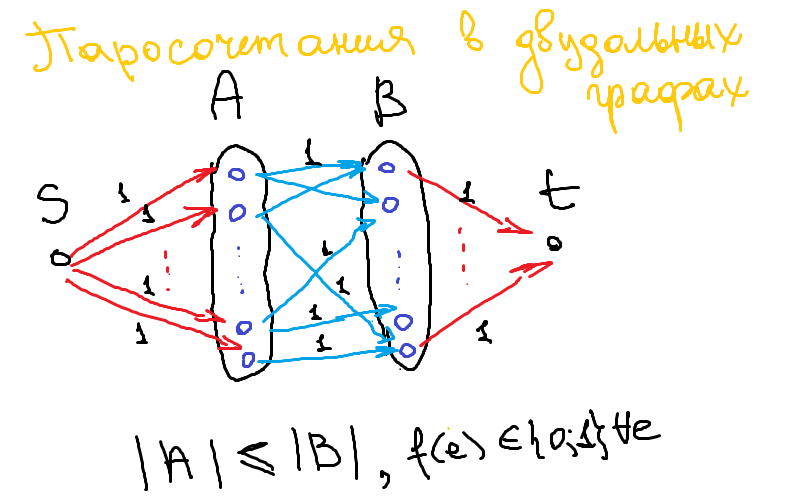 Паросочетания в двудольных
графах
A B
S t
1 1 1
1 1
1 1
1 1 1
1 1
|A| ≤ |B|, f(e) ∈ {0;1} ∀e